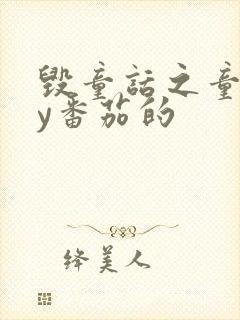 毁童话之童
y番茄的
绛美人